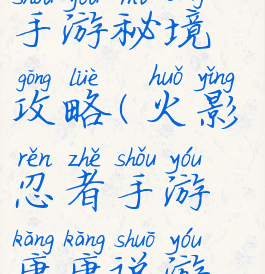 shǒu yóu mì jìng
手游秘境
gōng lüè huǒ yǐng
攻略(火影
rěn zhě shǒu yóu
忍者手游
kāng kāng shuō yóu
康康说游